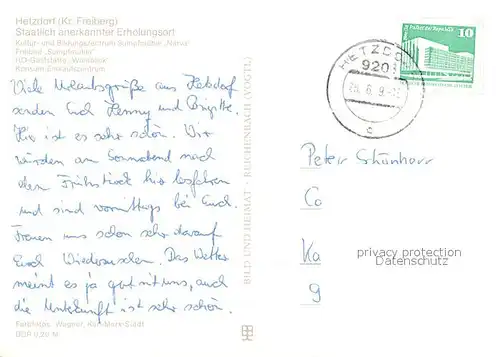 Hetzdorf (Kr. Freiberg)
Staatlich anerkannter Erholungsort
Kultur- und Bildungszentrum Sumpfmühle "Narva"
Freibad "Sumpfmühle"
HO-Gaststätte
Konsum-Einkaufszentrum
Viele Urlaubsgrüße aus Hetzdorf
senden Euch Henny und Brigitte.
Hier ist es sehr schön. Wir
würden am Sonnabend nach
dem Frühstück hier losfahren
und sind vormittags bei Euch.
Freuen uns schon sehr darauf
Euch Wiederzusehen. Das Wetter
meint es ja gut mit uns, auch
die Unterkunft ist sehr schön.
Farbfotos: Wagner, Karl-Marx-Stadt
DDR 0,20 M
BILD UND HEIMAT · REICHENBACH (VOGTL)
HETZDO
920
c
10
Peter Schönherr
Co
Ka
9
privacy protection
Datenschutz